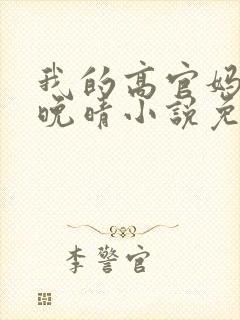 我的高官妈
晚晴小说免
李警官